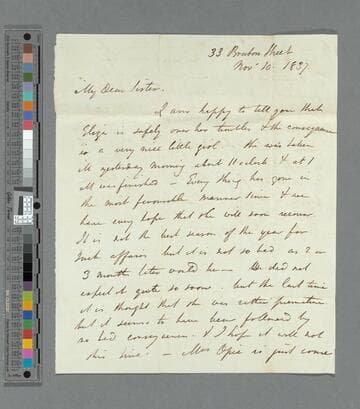 33 Bruton Street
Nov.r 10. 1837.
My Dear Sister.
I am happy to tell you that
Eliza is safely over her troubles & the consequence
is a very nice little girl. She was taken
ill yesterday morning about 11 oclock & at 1
all was finished — Every thing has gone in
the most favourable manner since & we
have every hope that she will soon recover.
It is not the best season of the year for
such affairs but it is not so bad as 2 or
3 months later would be — We did not
expect it quite so soon. but the last time
it is thought that she was rather premature
but it seems to have been followed by
no bad consequences. & I hope it will not
this time. — Mrs Opie is just come